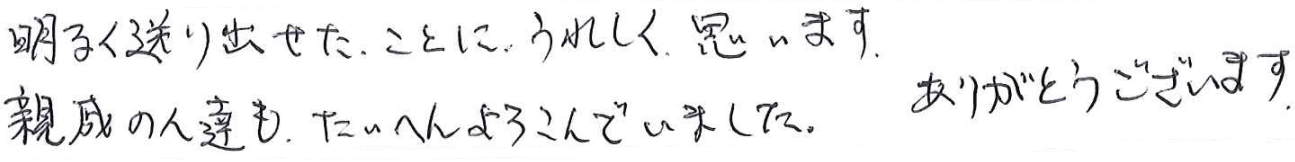 明るく送り出せた、ことに、うれしく、思います、
親戚の人達も、たいへんよろこんでいました。
ありがとうございます、